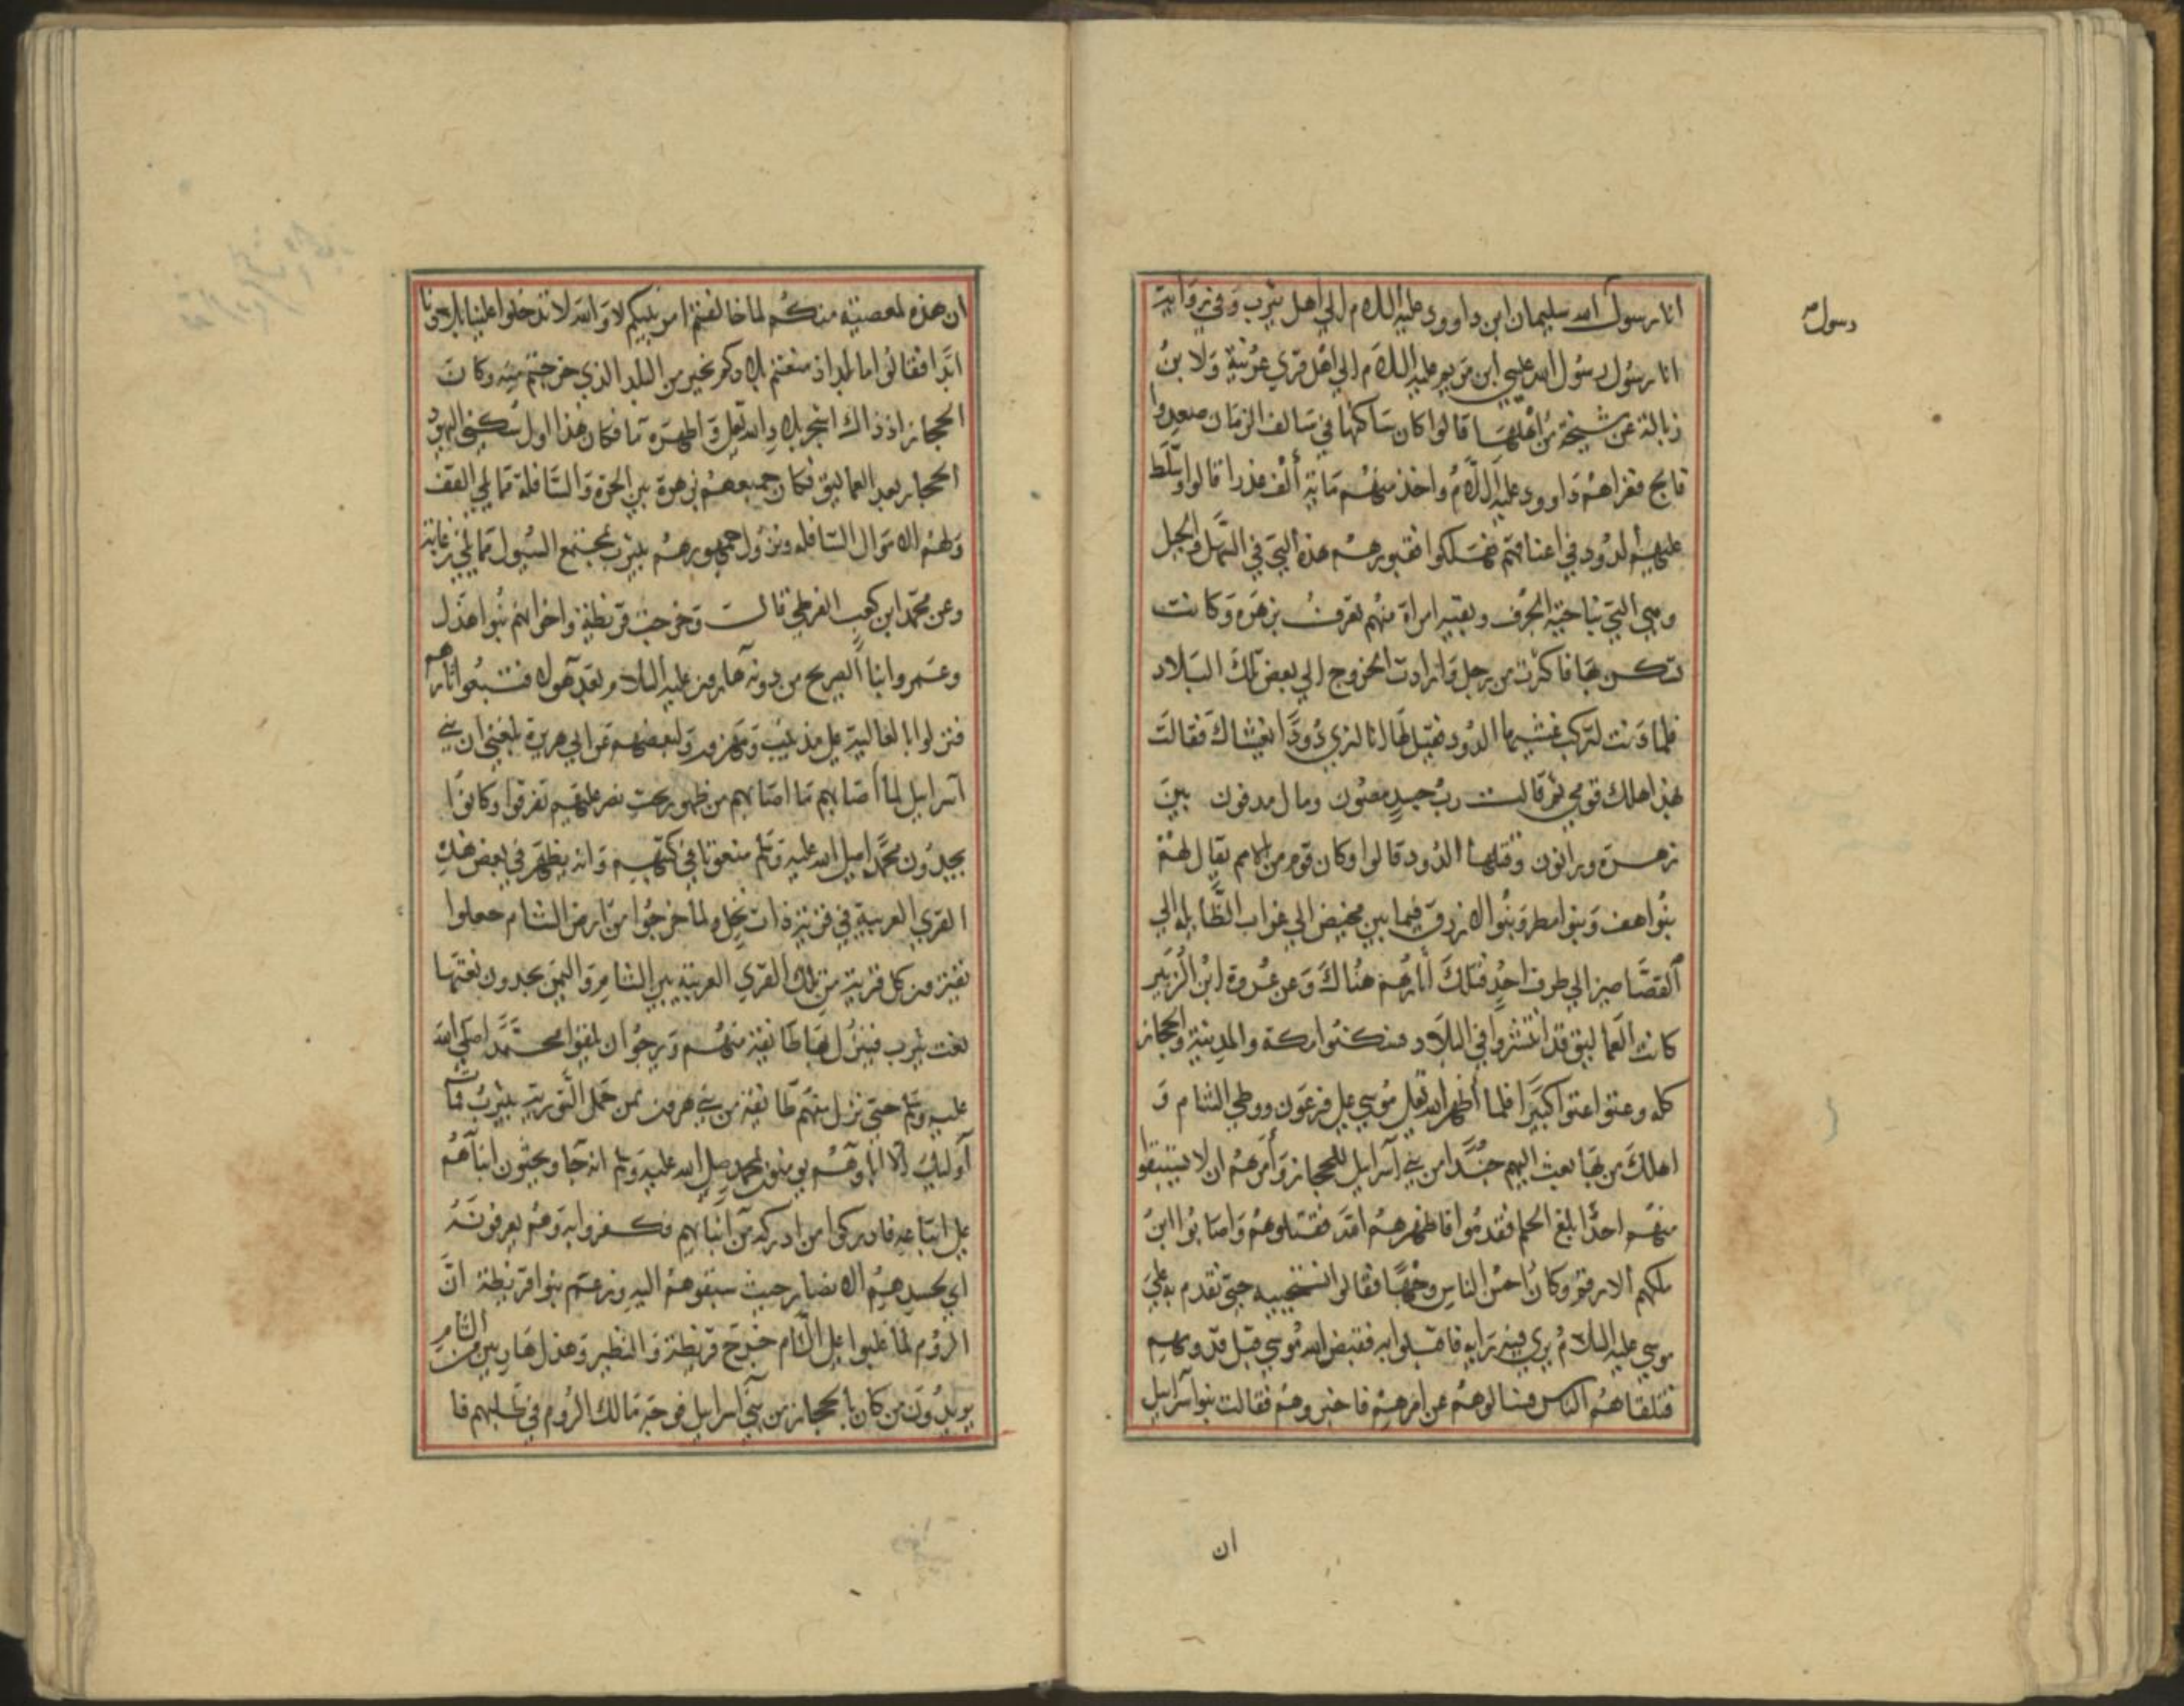 انا رسول الله سليمان ابن داوود عليه اللام الي اهل يثرب وفي رواية
رسول
انا رسول رسول الله عيسي ابن مريم عليه اللام الي اهل قري عرنية ولا بن
زبالة عن مشيخة من اهلها قالوا كان ساكنها في سالف الزمان صعدوا
فالج فغزاهم داوود عليه اللام واخذ منهم ماية ألف عذرا قالوا وسلط
عليهم الدود في اعناقهم فهلكوا فقبورهم هذه التي في السهل والجبل
وهي التي بناحية الجرف وبقيه امراة منهم تعرف بزهرة وكانت
تسكن بها فاكترت من رجل وارادت الخروج الي بعض تلك البلاد
فلما دنت لتركب غشيها الدود فقيل لها انا لنري دودا يغشاك فقالت
بهذا هلك قومي ثم قالت رب جسد مصون ومال مدفون بين
زهرة ورانون وقتلها الدود قالوا وكان قوم من الامم يقال لهم
بنوا هف وبنوا مطر وبنوا الازرق فيما بين مخيض الي غراب الضايله الي
القصاصين الي طرف احد فتلك أثارهم هناك وعن عروة ابن الزبير
كانت العماليق قد انتشروا في البلاد فسكنوا مكة والمدينة والحجاز
كله وعتوا عتوا كبيرا فلما أظهر الله تعلي موسي علي فرعون ووطي الشام و
اهلك من بها بعث اليهم جندا من بني آسرايل للحجاز وأمرهم ان لا يستبقوا
منهم احدا بلغ الحلم فقدموا فاظهرهم الله فقتلوهم واصابوا ابن
ملكهم الارقم وكان احسن الناس وجها فقالوا نستحييه حتي نقدم به علي
موسي عليه السلام يري فيه رايه فاقبلوا به فقبض الله موسي قبل قدومهم
فتلقاهم الناس فسالوهم عن امرهم فاخبروهم فقالت بنوا آسرايل
ان
ان هذه لمعصية منكم لما خالفتم امر نبيكم لا والله لا تدخلوا علينا بلادنا
ابدا فقالوا اما لمد اذ منعتم بلادكم بخير من البلد الذي خرجتم منه وكان
الحجاز اذ ذاك اشجر بلاد الله تعلي واطهره ما فكان هذا اول سكني اليهود
الحجاز بعد العماليق فكان جميعهم بزهرة بين الحرة والسافلة مما يلي القف
ولهم الاموال السافله ونزول جمهورهم بيثرب بمجتمع السيول مما يلي زغابة
وعن محمد ابن كعب القرظي قالت وخرجت قريظة واخوانهم بنوا هذل
وعمرو ابنا الصريح من دونه هارون عليه السلام بعد هولاء فتبعوا اثارهم
فنزلوا بالعالية علي مذينيب ومهزور ولبعضهم عن ابي هريرة بلغني ان بني
آسرايل لما أصابهم ما اصابهم من ظهور بخت نصر عليهم تفرقوا وكانوا
يجدون محمدا صلي الله عليه وسلم منعوتا في كتبهم وانه يظهر في بعض هذه
القري العربية في قرية ذات نخل ولما خرجوا من ارض الشام جعلوا
نفية من كل قرية من تلك القري العربية بين الشام واليمن يجدون نعتها
نعت يثرب فينزل بها طايفة منهم ويرجوا ان يلقوا محمدا صلي الله
عليه وسلم حتي نزل منهم طايفة من بني هرون ممن حمل التورية بيثرب فمات
أوليك الاباؤهم يومنون بمحمد صلي الله عليه وسلم انه جا ويحثون ابناهم
علي اتباعه فادركوا من ادركه من ابنايهم فكفروا به وهم يعرفونه
اي بحسدهم الانصار حيث سبقوهم اليه وزعم بنوا قريظة ان
الروم لما غلبوا علي الشام خرج قريظة والنظير وهذل هاربين من الشام
يريدون من كان بالحجاز من بني آسرايل فوجه مالك الروم في طلبهم فا